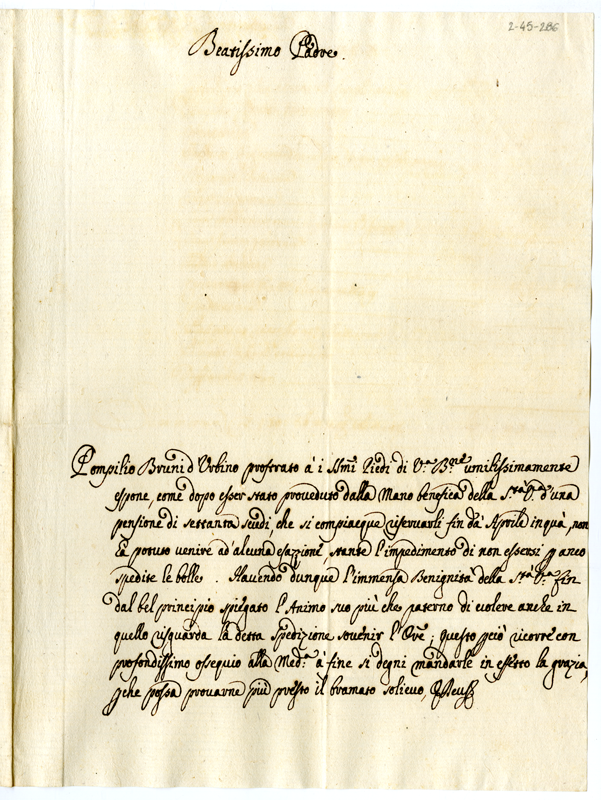 2-45-286
Beatissimo Padre.
Pompilio Bruni d'Urbino prostrato à i SSmi Piedi di V.a B.ne umilissimamente
espone, come dopo esser stato proveduto dalla Mano benefica della S.tà V.a d'una
pensione di settanta scudi, che si compiacque riservarli fin da Aprile in quà, non
à potuto venire ad'alcuna esazzione, stante l'impedimento di non essersi p anco
spedite le bolle. Havendo dunque l'immensa Benignità della S.tà V.a fin
dal bel principio spiegato l'Animo suo più che paterno di volere anche in
quello risguarda la detta spedizione sovenir l'Ore; questo pciò ricorre con
profondissimo ossequio alla Med.a à fine si degni mandarle in effetto la grazia,
pche possa provarne più presto il bramato solievo,